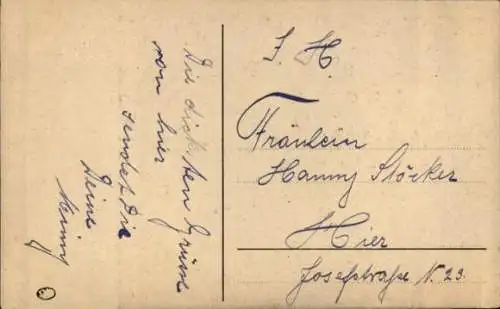 Die dicksten Grüsse
von hier
sendet Dir
Deine
J. H.
Fräulein
Hanny Stöcker
Hier
Josefstraße N. 23.